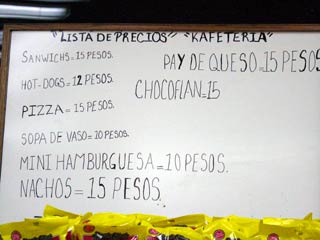 "LISTA DE PRECIOS" "KAFETERIA"
SANWICHS=15 PESOS.
HOT-DOGS=12 PESOS.
PIZZA=15 PESOS.
SOPA DE VASO=20 PESOS.
MINI HAMBURGUESA=10 PESOS.
NACHOS=15 PESOS.
PAY DE QUESO=15 PESOS
CHOCOFLAN=15